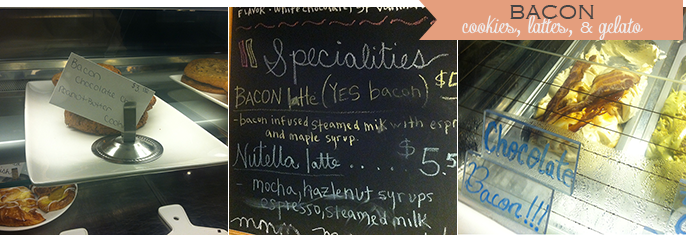 BACON
cookies, lattes, & gelato
Bacon
chocolate
Peanut-Butter
Flavor - white chocolate, or vanilla
Specialities
BACON latte (YES bacon)
- bacon infused steamed milk with espr
and maple syrup.
Nutella latte . . . . . $5.5
- mocha, hazlenut syrups
espresso, steamed milk
Chocolate
Bacon!!!